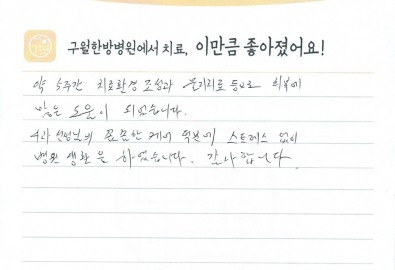 구월한방병원에서 치료, 이만큼 좋아졌어요!
약 5주간 치료환경 조성과 물리치료 등으로 회복에
많은 도움이 되었습니다.
4과 선생님의 꼼꼼한 케어 덕분에 스트레스 없이
병원 생활을 하였습니다. 감사합니다.